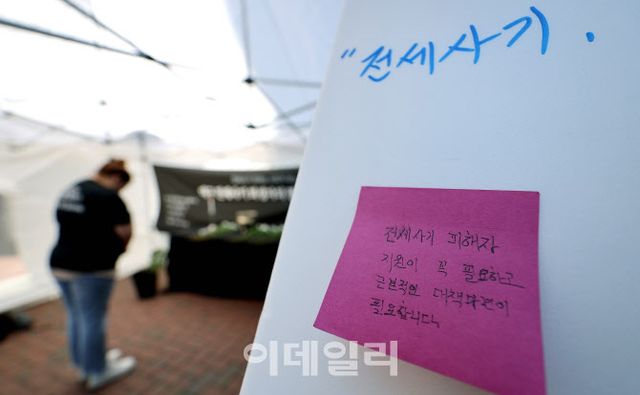 "전세사기.
전세사기 피해장
지원이 꼭 필요하고
근본적인 대책마련이
필요합니다.
이데일리